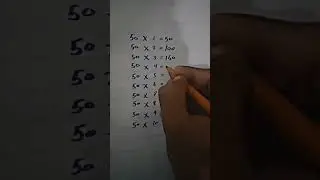 50 x 1 = 50
50 x 2 = 100
50 x 3 = 150
50 x 4 =
50 x 5 =
50 x 6 =
50 x 7
50 x 8
50 x 9
50 x 10